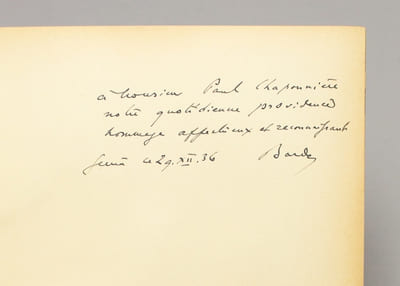 à Monsieur Paul Chaponnière
notre quotidienne providence
hommage affectueux et reconnaissant
ce 29.XII.36